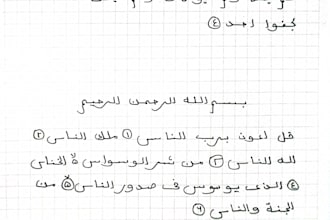 كفوا احد ٤
بسم الله الرحمن الرحيم
قل اعوذ برب الناس ١ ملك الناس ٢
اله الناس ٣ من شر الوسواس الخناس
٤ الذى يوسوس فى صدور الناس ٥ من
الجنة والناس ٦